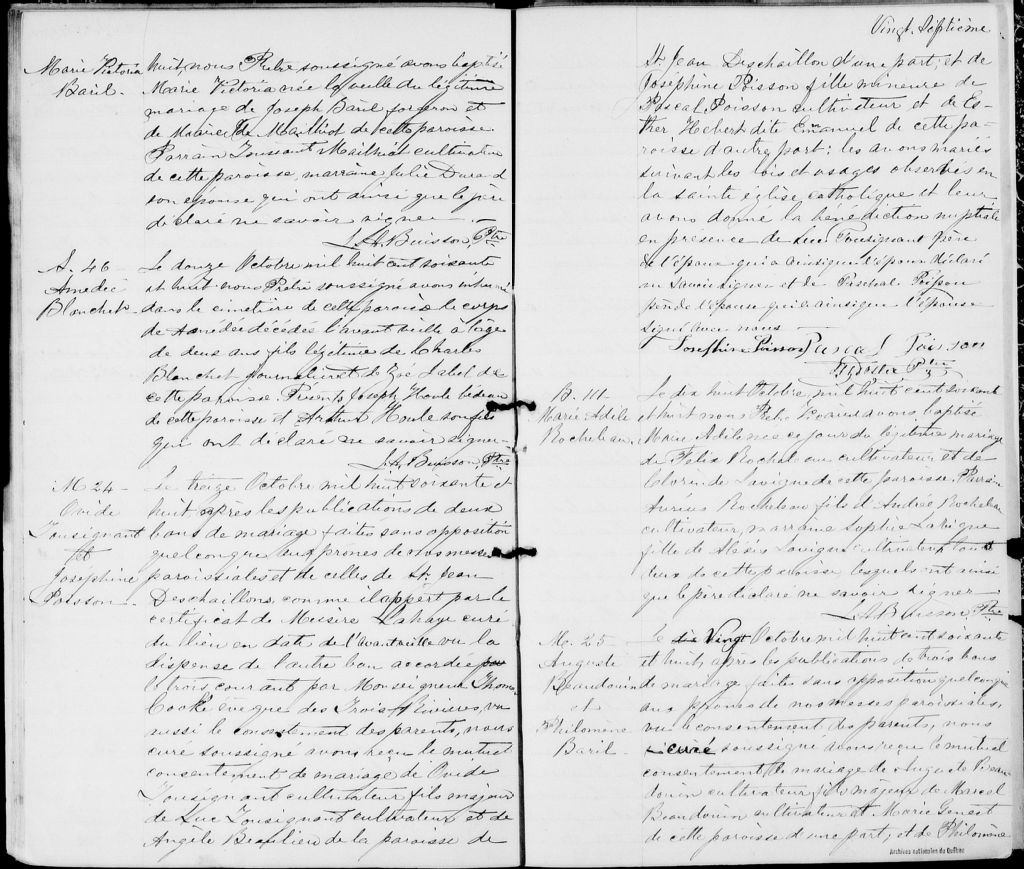 Marie Victoria
Baril.
huit, nous Prêtre soussigné avons baptisé
Marie Victoria née la veille du légitime
mariage de Joseph Baril forgeron et
de Marie de Mailhiot de cette paroisse
Parrain Toussaint Mailhiot cultivateur
de cette paroisse, marraine Julie Durand
son épouse qui ont ainsi que le père
déclaré ne savoir signer
L. A. Buisson, Ptre
S. 46
Amedée
Blanchet
Le douze Octobre mil huit cent soixante
et huit nous Prêtre soussigné avons inhumé
dans le cimetière de cette paroisse le corps
de Amédée décédé l'avant veille à l'âge
de deux ans fils légitime de Charles
Blanchet journalier et de Zoé Label de
cette paroisse. Présents Joseph Houle bedeau
de cette paroisse et Arthur Houle son fils
qui ont déclaré ne savoir signer.
L. A. Buisson, Ptre
M 24
Ovide
Tousignant
et
Josephine
Poisson.
Le treize Octobre mil huit soixante et
huit après les publications de deux
bans de mariage faites sans opposition
quelconque aux prones de nos messes
paroissiales et de celles de St. Jean
Deschaillons comme il appert par le
certificat de Messire Lahaye curé
du lieu en date de l'avant veille vu la
dispense de l'autre ban accordée par
le trois courant par Monseigneur Thomas
Cooke évêque des Trois Rivières, vu
aussi le consentement des parents, nous
curé soussigné avons reçu le mutuel
consentement de mariage de Ovide
Tousignant cultivateur fils majeur
de Luc Tousignant cultivateur et de
Angèle Beaulieu de la paroisse de
Vingt Septième
St. Jean Deschaillon d'une part; et de
Joséphine Poisson fille mineure de
Pascal Poisson cultivateur et de Es-
ther Hebert dite Emanuel de cette pa-
roisse d'autre part; les avons mariés
suivant les lois et usages observés en
la sainte église catholique et leur
avons donné la bénédiction nuptiale
en présence de Luc Tousignant père
de l'époux qui a ainsi que l'époux déclaré
ne savoir signer et de Paschal Poisson
père de l'épouse qui a ainsi que l'épouse
signé avec nous
Josephine Poisson Pascal Poisson
Ptre
B. 111
Marie Adile
Rocheleau
Le dix huit Octobre mil huit cent soixante
et huit nous Ptre soussigné avons baptisé
Marie Adile née ce jour du légitime mariage
de Felix Rocheleau cultivateur et de
de Lavigne de cette paroisse. Parrain
Rocheleau fils d'André Rocheleau
cultivateur, marraine Sophie Lavigne
fille de Alexis Lavigne cultivateur tous
deux de cette paroisse lesquels ont ainsi
que le père déclaré ne savoir signer
L. A. Buisson, Ptre
M. 25
Auguste
Beaudouin
et
Philomène
Baril
Le dix Vingt Octobre mil huit cent soixante
et huit, après les publications de trois bans
de mariage faites sans opposition quelconque
aux prones de nos messes paroissiales,
vu le consentement des parents, nous
curé soussigné avons reçu le mutuel
consentement de mariage de Auguste Beau-
douin cultivateur fils majeur de Marcel
Beaudouin cultivateur et Marie Genest
de cette paroisse d'une part; et de Philomène
Archives nationales du Québec